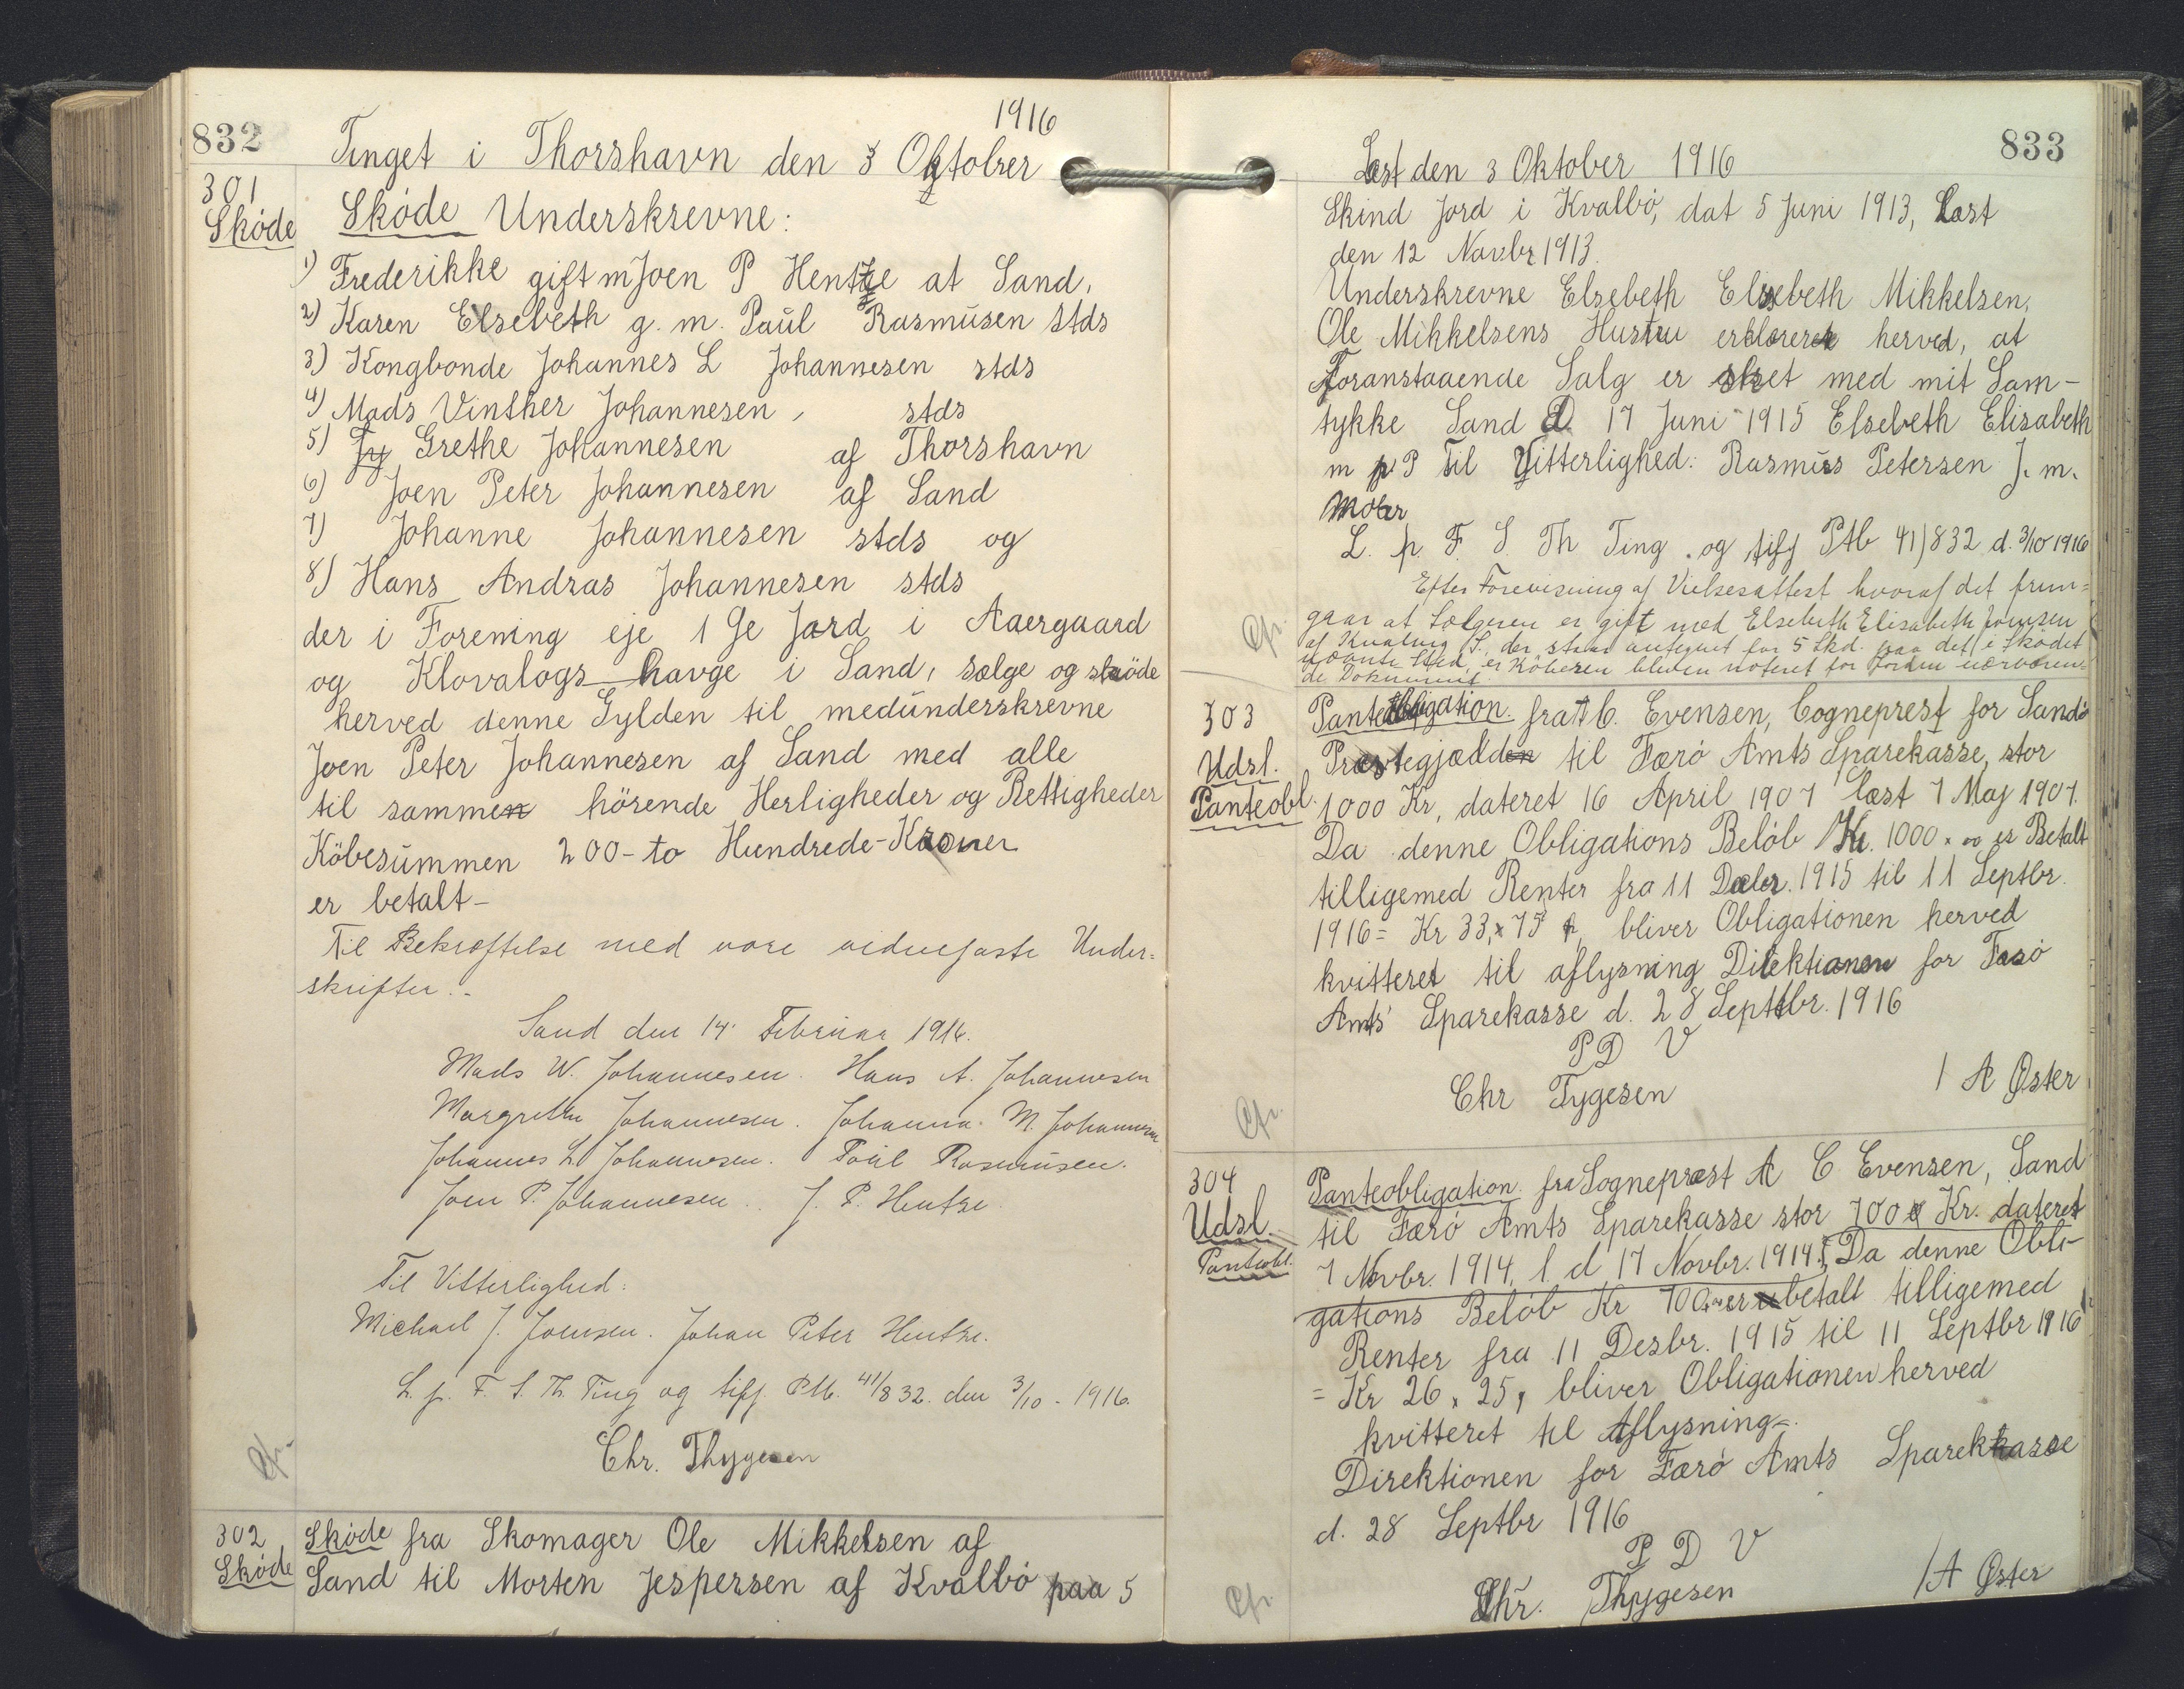 832
1916
Tinget i Thorshavn den 3 Oktober
301
Sköde
Sköde Underskrevne:
1) Frederikke gift m Joen P Hentze at Sand,
2) Karen Elsebeth g. m. Paul Rasmusen stds
3) Kongbonde Johannes L Johannesen stds
4) Mads Vinther Johannesen, stds
5) Grethe Johannesen af Thorshavn
6) Joen Peter Johannesen af Sand
7) Johanne Johannesen stds og
8) Hans Andras Johannesen stds
der i Forening eje 1 Ge Jord i Aaergaard
og Klovalogs havge i Sand, sælge og sköde
herved denne Gylden til medunderskrevne
Joen Peter Johannesen af Sand med alle
til sammen hörende Herligheder og Rettigheder
Köbesummen 200 - to Hundrede - Kroner
er betalt -
Til Bekræftelse med vore vidnefaste Under=
skrifter.-
Sand den 14. Februar 1916.
Mads W. Johannesen. Hans A. Johannesen
Margrethe Johannesen. Johanna. M. Johannesen
Johannes L Johannesen. Poul Rasmusen.
Joen P. Johannesen. J. P. Hentze.
Til Vitterlighed:
Michael J. Joensen. Johan Peter Hentze.
L. p. F. S. Th. Ting og tifj. Ptb. 41/832. den 3/10 - 1916.
Chr. Thygesen
Cfr.
302
Sköde
Sköde fra Skomager Ole Mikkelsen af
Sand til Morten Jespersen af Kvalbö paa 5
833
Læst den 3 Oktober 1916
Skind Jord i Kvalbö, dat 5 Juni 1913, Læst
den 12 Novbr 1913.
Underskrevne Elsebeth Elisebeth Mikkelsen,
Ole Mikkelsens Hustru erklærer herved, at
Foranstaaende Salg er sket med mit Sam-
tykke Sand d. 17 Juni 1915 Elsebeth Elisabeth
m p P Til Vitterlighed: Rasmus Petersen J. m.
L. p. F. S. Th Ting. og tifj Ptb 41)832 d. 3/10 1916
Efter Forevisning af Vielsesattest hvoraf det frem=
gaar at Sælgeren er gift med Elsebeth Elisabeth Joensen
af Kvalbö, der staar antegnet for 5 Skd. paa det i Sködet
nævnte Sted, er Köberen bleven noteret for Jorden nærværen-
de Dokument.
Cfr.
303
Udsl.
Panteobl.
Panteobligation fra A C. Evensen, Sogneprest for Sandö
Præstegjæld til Færö Amts Sparekasse, stor
1000 Kr, dateret 16 April 1907 læst 7 Maj 1907.
Da denne Obligations Belöb Kr. 1000 × 00 er Betalt
tilligemed Renter fra 11 Decbr. 1915 til 11 Septbr.
1916 = Kr 33,75 bliver Obligationen herved
kvitteret til aflysning Direktionen for Færö
Amts Sparekasse d. 28 Septbr. 1916
P D V
Chr Tygesen / A Øster
Cfr.
304
Udsl.
Panteobl.
Panteobligation fra Sogneprest A C Evensen, Sand
til Færö Amts Sparekasse stor 700 Kr. dateret
7 Novbr. 1914, l d 17 Novbr. 1914. Da denne Obli-
gations Belöb Kr 700 er betalt tilligemed
Renter fra 11 Desbr. 1915 til 11 Septbr 1916
= Kr 26 × 25, bliver Obligationen herved
kvitteret til Aflysning.
Direktionen for Færö Amts Sparekasse
d. 28 Septbr 1916
P D V
Chr. Thygesen / A Øster
Cfr.